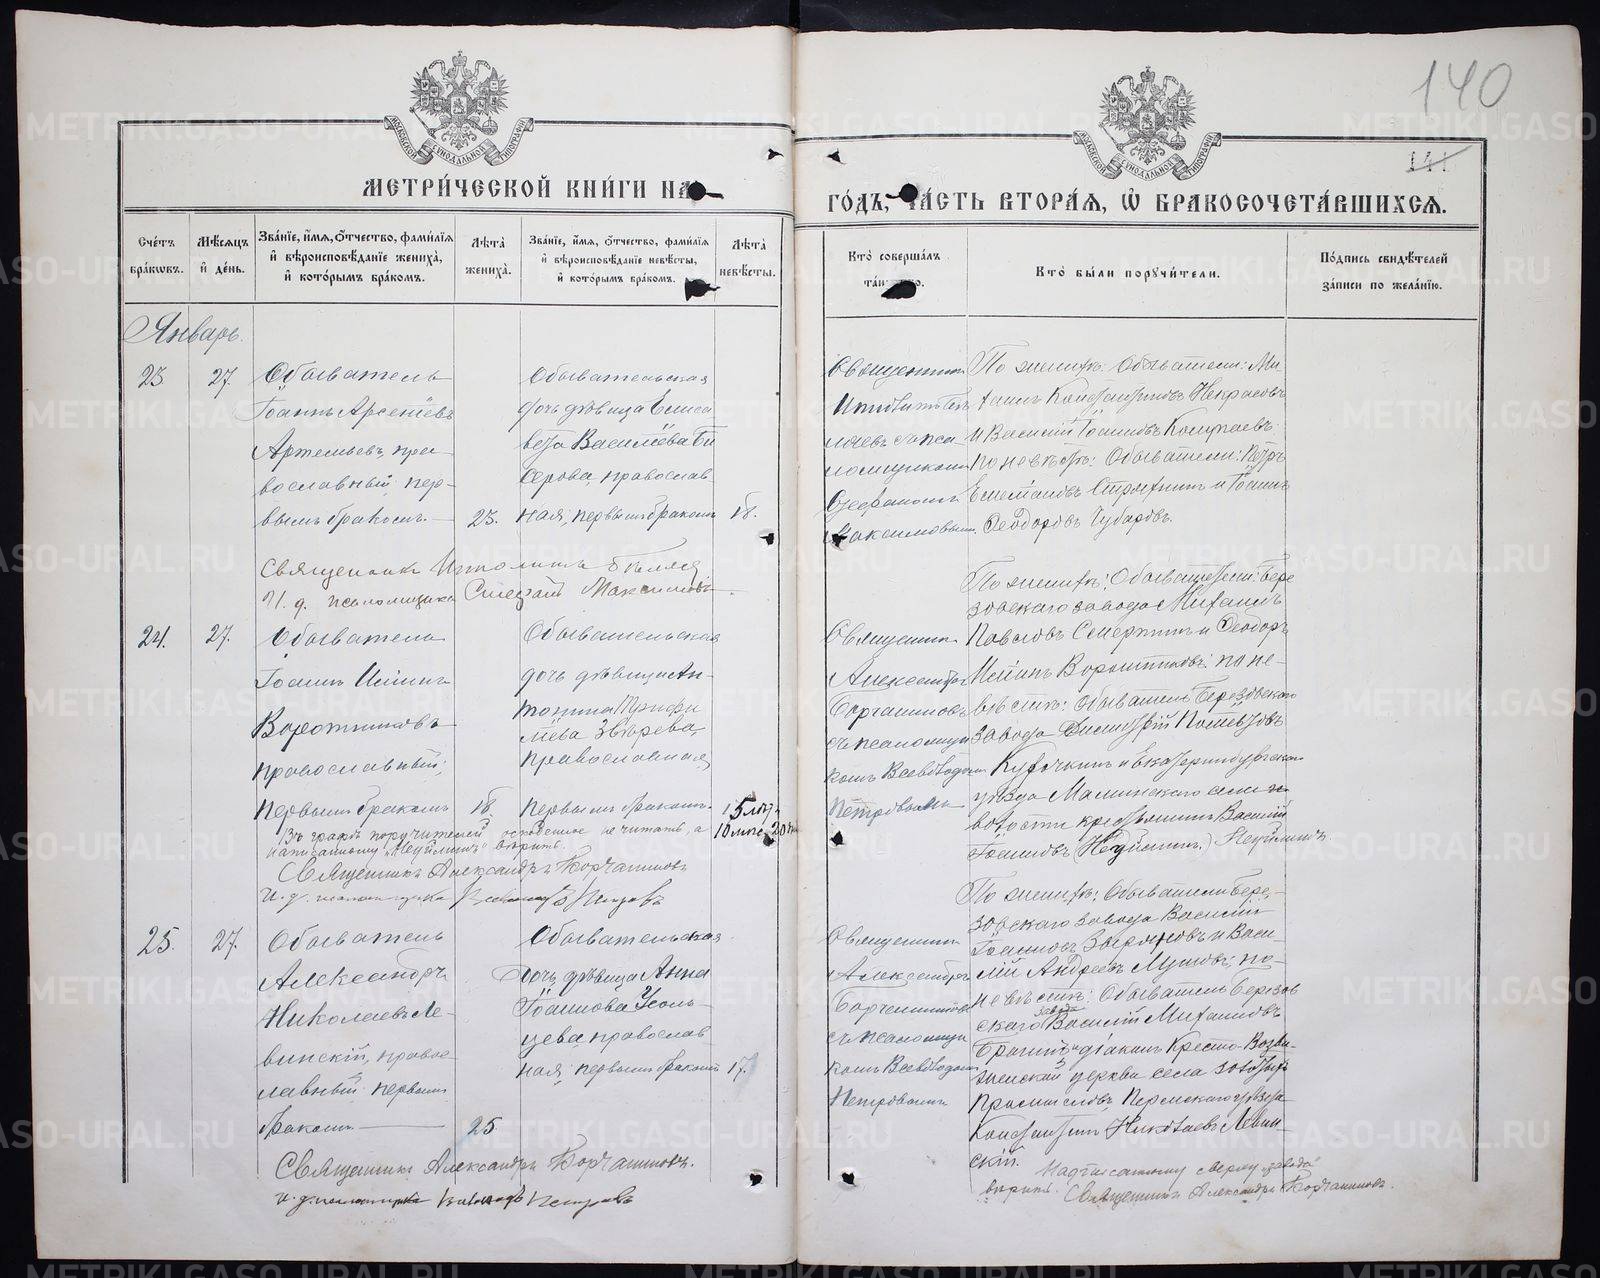 140
141
МЕТРИ́ЧЕСКОЙ КНИ́ГИ НА
ГО́ДЪ, ЧА́СТЬ ВТОРА́Я, Ѽ БРАКОСОЧЕТА́ВШИХСЯ.
Сче́тъ бра́кѡвъ.
Мѣ́сяцъ и҆ де́нь.
Зва́нїе, и҆́мя, ѻ҆́тчество, фами́лїя и҆ вѣроисповѣ́данїе жениха̀, и҆ кото́рымъ бра́комъ.
Лѣта̀ жениха̀.
Зва́нїе, и҆́мя, ѻ҆́тчество, фами́лїя и҆ вѣроисповѣ́данїе невѣ́сты, и҆ кото́рымъ бра́комъ.
Лѣта̀ невѣ́сты.
Кто̀ соверша́лъ
Кто̀ бы́ли порꙋчи́тели.
По́дпись свидѣ́телей за́писи по жела́нїю.
Январь.
23
27.
Обыватель
Іоаннъ Арсеніевъ
Артемьевъ, пра-
вославный, пер-
вымъ бракомъ.
23.
Обывательская
дочь дѣвица Елиса
вета Василіева Би
серова, православ
ная, первымъ бракомъ
18.
Священникъ
съ псаломщикомъ
Стефаномъ
Максимовымъ.
По женихѣ: Обыватели: Ми
хаилъ Константиновъ Некрасовъ
и Василій Іоанновъ
по невѣстѣ: Обыватели: Петръ
и Іоаннъ
Ѳеодоровъ Чубаровъ.
Священникъ Ипполитъ
И. д. псаломщика Стефанъ Максимовъ.
24.
27.
Обыватель
Іоаннъ Исіинъ
Воротниковъ
православный,
первымъ бракомъ
18.
Обывательская
дочь дѣвица Ан-
тонина Трифи
ліева Звѣрева,
православная,
первымъ бракомъ.
15 лѣт
10 мѣс. 20 дн
Священникъ
Александръ
Борчаниновъ
съ псаломщи
комъ Всеволодомъ
Петровымъ
По женихѣ: Обыватели: Бере
зовскаго завода Михаилъ
Павловъ и Ѳеодоръ
Исіинъ Воротниковъ; по не-
вѣстѣ: Обыватель Березовскаго
завода Димитрій
и Екатеринбургскаго
уѣзда села и
волости крестьянинъ Василій
Іоанновъ
Въ графѣ поручителей оскобленное не читать, а
написанному вѣрить.
Священникъ Александръ Борчаниновъ
И. д. псаломщика Всеволодъ Петровъ
25.
27.
Обыватель
Александръ
Николаевъ Ле-
винскій, право
славный, первымъ
бракомъ
25
Обывательская
дочь, дѣвица Анна
Іоаннова Усоль-
цева, православ
ная, первымъ бракомъ
17
Священникъ
Александръ
Борчаниновъ
съ псаломщи
комъ Всеволодомъ
Петровымъ
По женихѣ: Обыватели Бере-
зовскаго завода Василій
Іоанновъ и Васи-
лій Андреевъ по-
невѣстѣ: Обыватель Березов
завода
скаго Василій Михаиловъ
и діаконъ Кресто-Воздви
женской церкви села
Пермскаго уѣзда
Константинъ Николаевъ Левин-
скій.
Надписанному сверху „завода"
вѣрить. Священникъ Александръ Борчаниновъ.
Священникъ Александръ Борчаниновъ.
И. д. псаломщика Всеволодъ Петровъ
METRIKI.GASO-URAL.RU